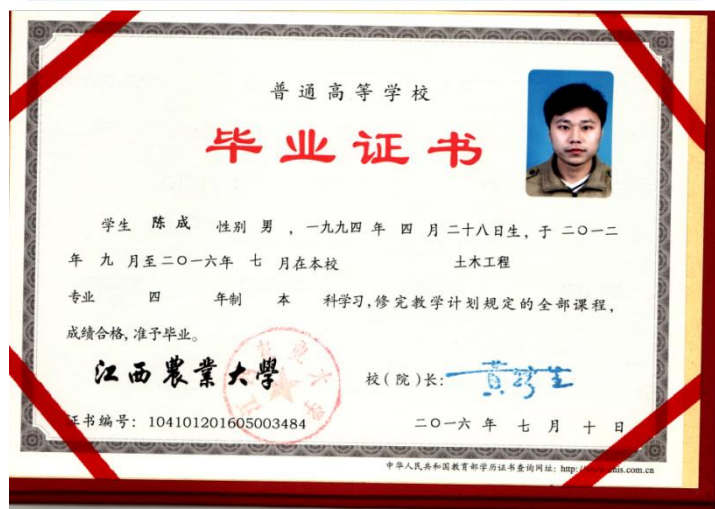 普通高等学校
毕业证书
学生 陈成 性别 男 ，一九九四 年 四 月 二十八日生，于 二〇一二
年 九 月至 二〇一六年 七 月在本校 土木工程
专业 四 年制 本 科学习，修完教学计划规定的全部课程，
成绩合格，准予毕业。
江西農業大學
校（院）长：
证书编号：104101201605003484
二〇一六 年 七 月 十 日
中华人民共和国教育部学历证书查询网址：http: